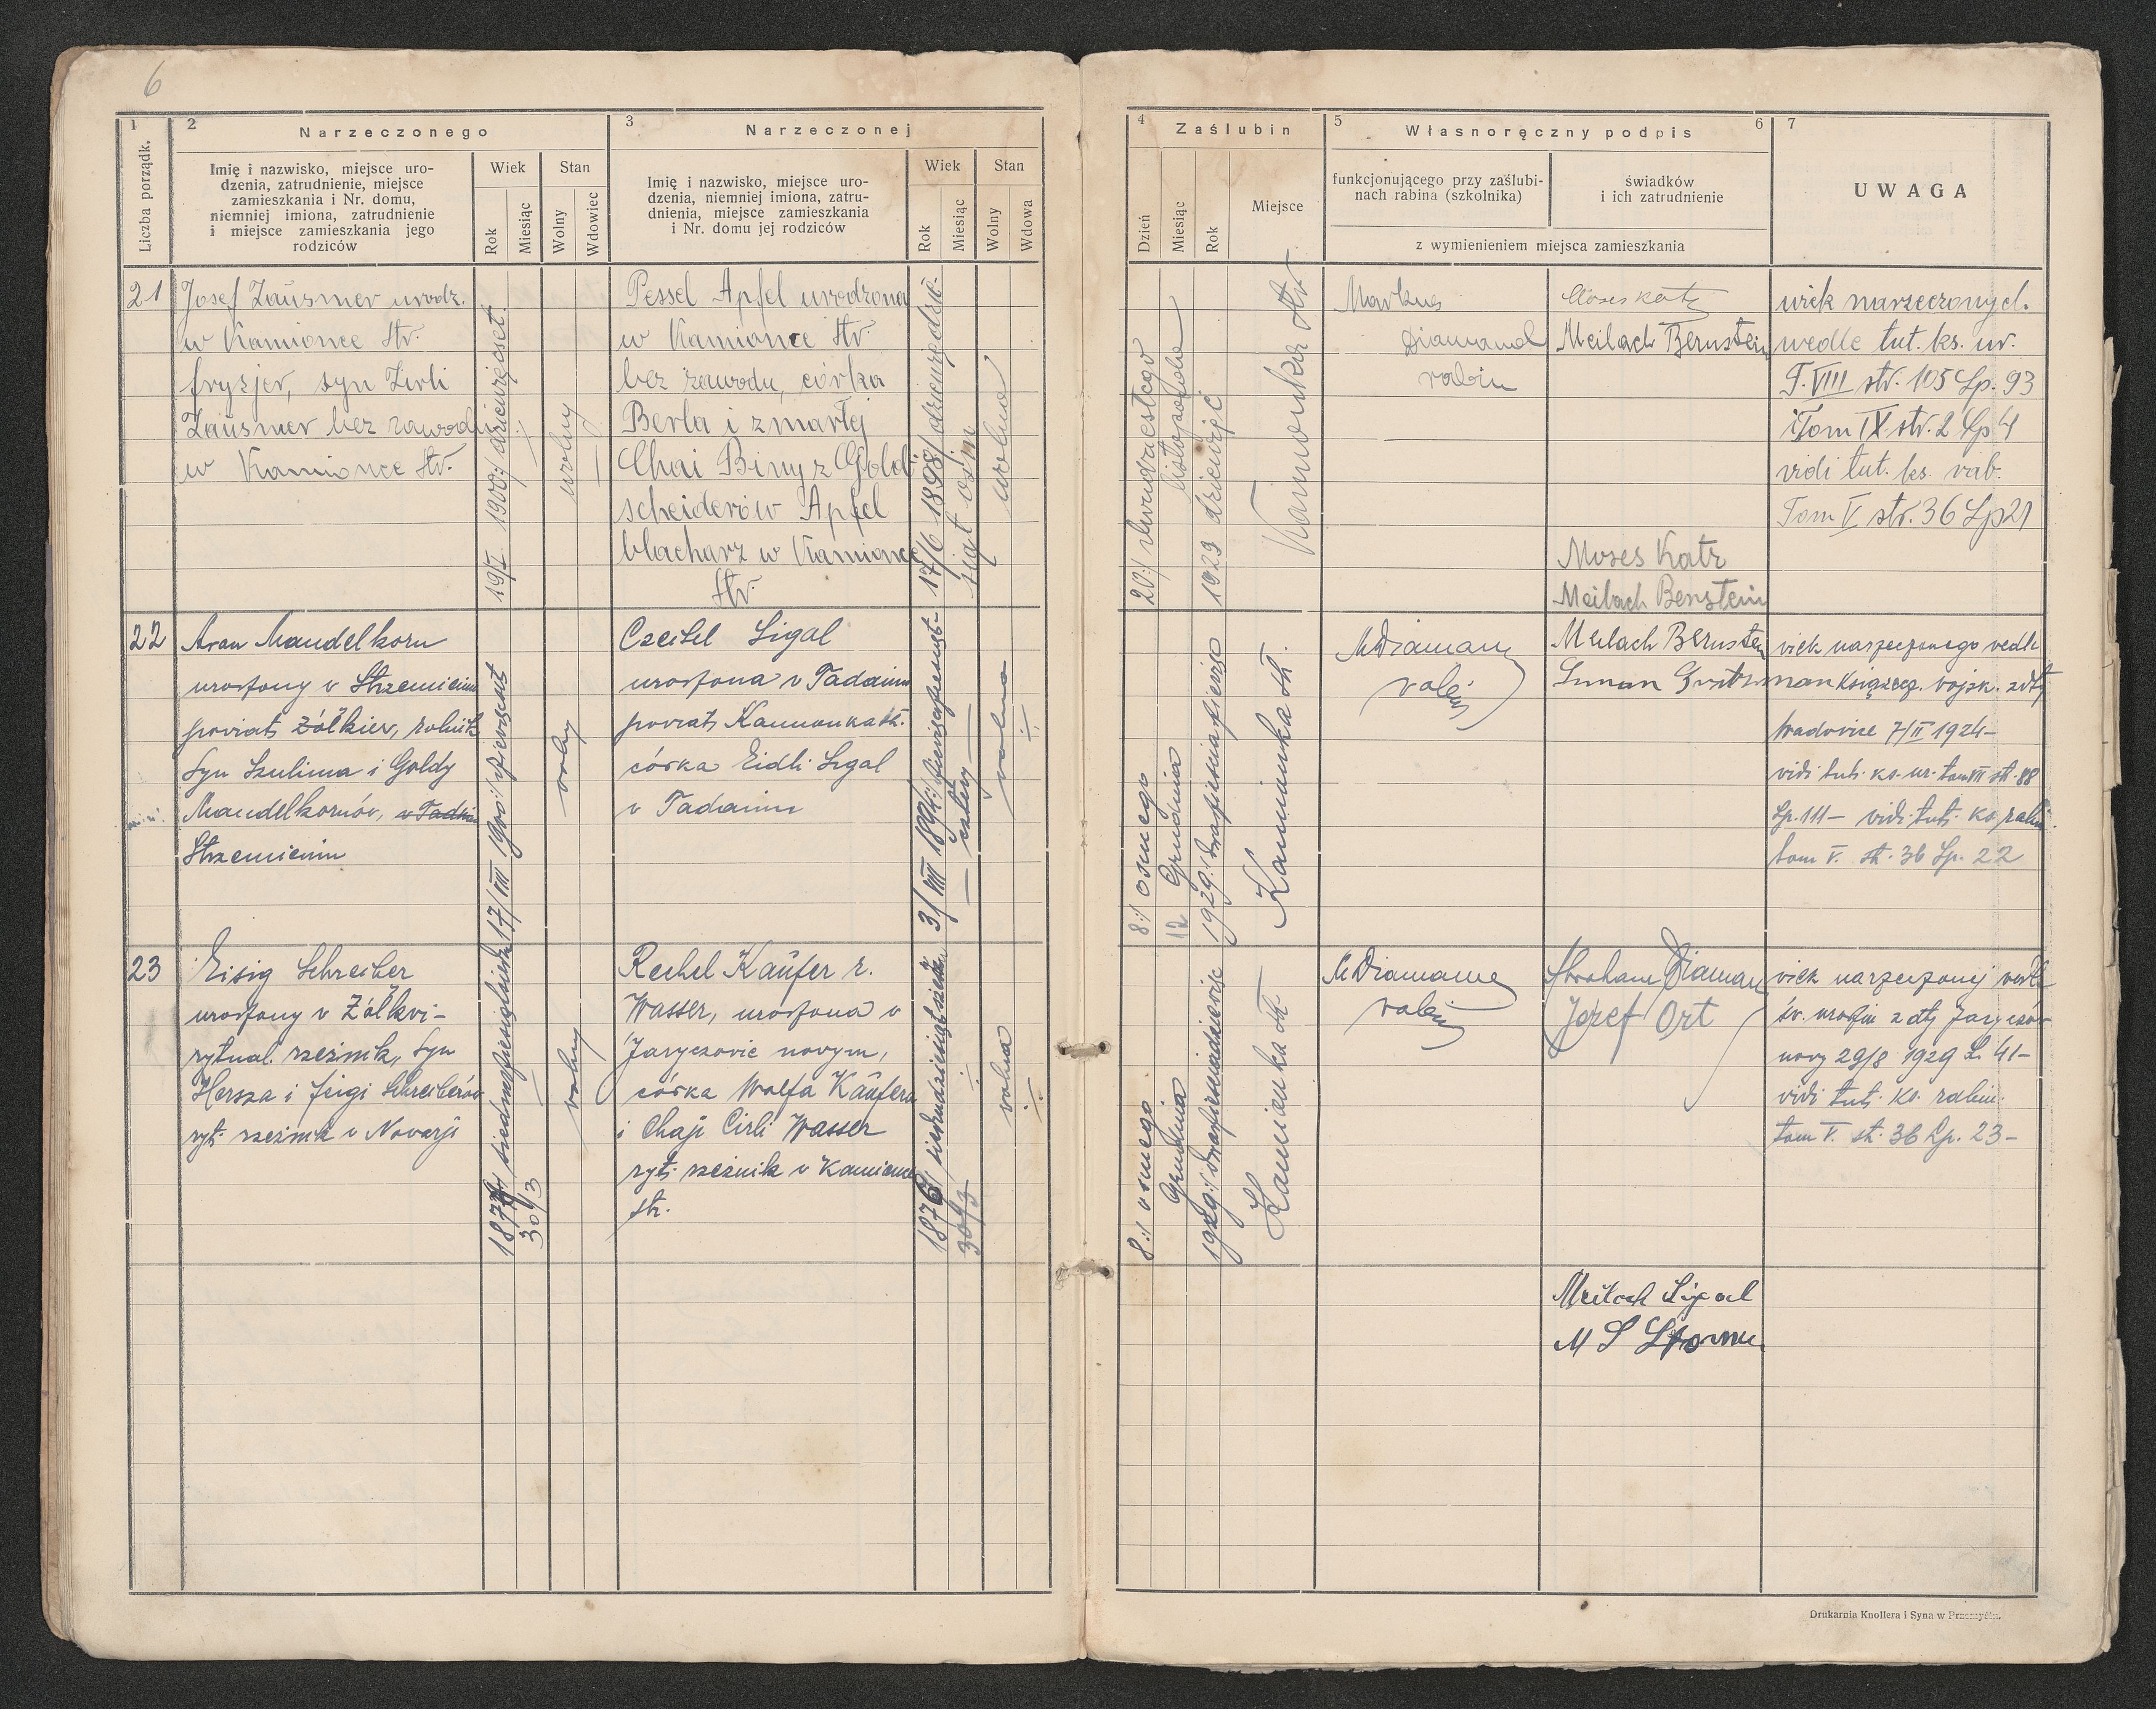 6
1
2
Narzeczonego
3
Narzeczonej
Liczba porządk.
Imię i nazwisko, miejsce uro-
dzenia, zatrudnienie, miejsce
zamieszkania i Nr. domu,
niemniej imiona, zatrudnienie
i miejsce zamieszkania jego
rodziców
Wiek
Rok
Miesiąc
Stan
Wolny
Wdowiec
Imię i nazwisko, miejsce uro-
dzenia, niemniej imiona, zatru-
dnienia, miejsce zamieszkania
i Nr. domu jej rodziców
Wiek
Rok
Miesiąc
Stan
Wolny
Wdowa
21
Josef Zausmer urodz.
w Kamionce Str.
fryzjer, syn Zirli
Zausmer bez zawodu
w Kamionce Str.
19/I 1900/ dziewięćset
wolny
Pessel Apfel urodzona
w Kamionce Str.
bez zawodu, córka
Berla i zmarłej
Chai Biny z Gold
scheiderów Apfel
blacharz w Kamionce
Str.
17/6 1898/
wolna
22
Aron Mandelkorn
urodzony w Strzemieniu
powiat Żółkiew, rolnik
syn Szulima i Goldy
Mandelkornów,
Strzemieniu
17/VIII 900:/ dziewięćset
wolny
Sigal
urodzona w Tadaniu
powiat Kamionka str.
córka Eidli Sigal
w Tadaniu
3/VIII 189
cztery
wolna
23
Eisig Schreiber
urodzony w Żółkwi-
rytual. rzeźnik, syn
Hersza i Feigi Schreiberów
ryt. rzeźnik w Nowarji
30/3
wolny
Rechel Käufer r.
Wasser, urodzona w
Jaryczowie nowym,
córka Wolfa Käufera
i Chaji Cirli Wasser
ryt. rzeźnik w Kamionce
str.
1876/
30/3
wolna
4
Zaślubin
5
Własnoręczny podpis
6
7
Dzień
Miesiąc
Rok
Miejsce
funkcjonującego przy zaślubi-
nach rabina (szkolnika)
świadków
i ich zatrudnienie
z wymienieniem miejsca zamieszkania
UWAGA
20:/ dwudziestego
listopada
1929 dziewięć
Kamionka Str
Markus
Diamand
rabin
Moses Katz
Meilach Bernstein
Moses Katz
Meilach Bernstein
wiek narzeczonych
wedle tut. ks. ur.
T. VIII str. 105 Lp. 93
i Tom IX str. 2 Lp 4
vidi tut. ks. rab.
Tom V str. 36 Lp 21
8:/ osmego
12 Grudnia
1929:/
Kamionka str.
MDiamand
rabin
Meilach Bernstein
wiek narzeczonego wedle
Książecz. wojsk. z dty
Wadowice 7/II 1924-
vidi tut. ks. ur. tom VII str. 88
Lp. 111- vidi tut. ks. rabin.
tom V. str. 36 Lp. 22
8:/ osmego
Grudnia
1929:/
Kamionka str
MDiamand
rabin
Abraham Diamand
Józef Ort
wiek narzeczonej wedle
św. urodzin z dty Jaryczów
nowy 29/8 1929 L. 41-
vidi tut. ks. rabin.
tom V. str. 36 Lp. 23-
Meilach Sigal
M S
Drukarnia Knollera i Syna w Przemyślu.